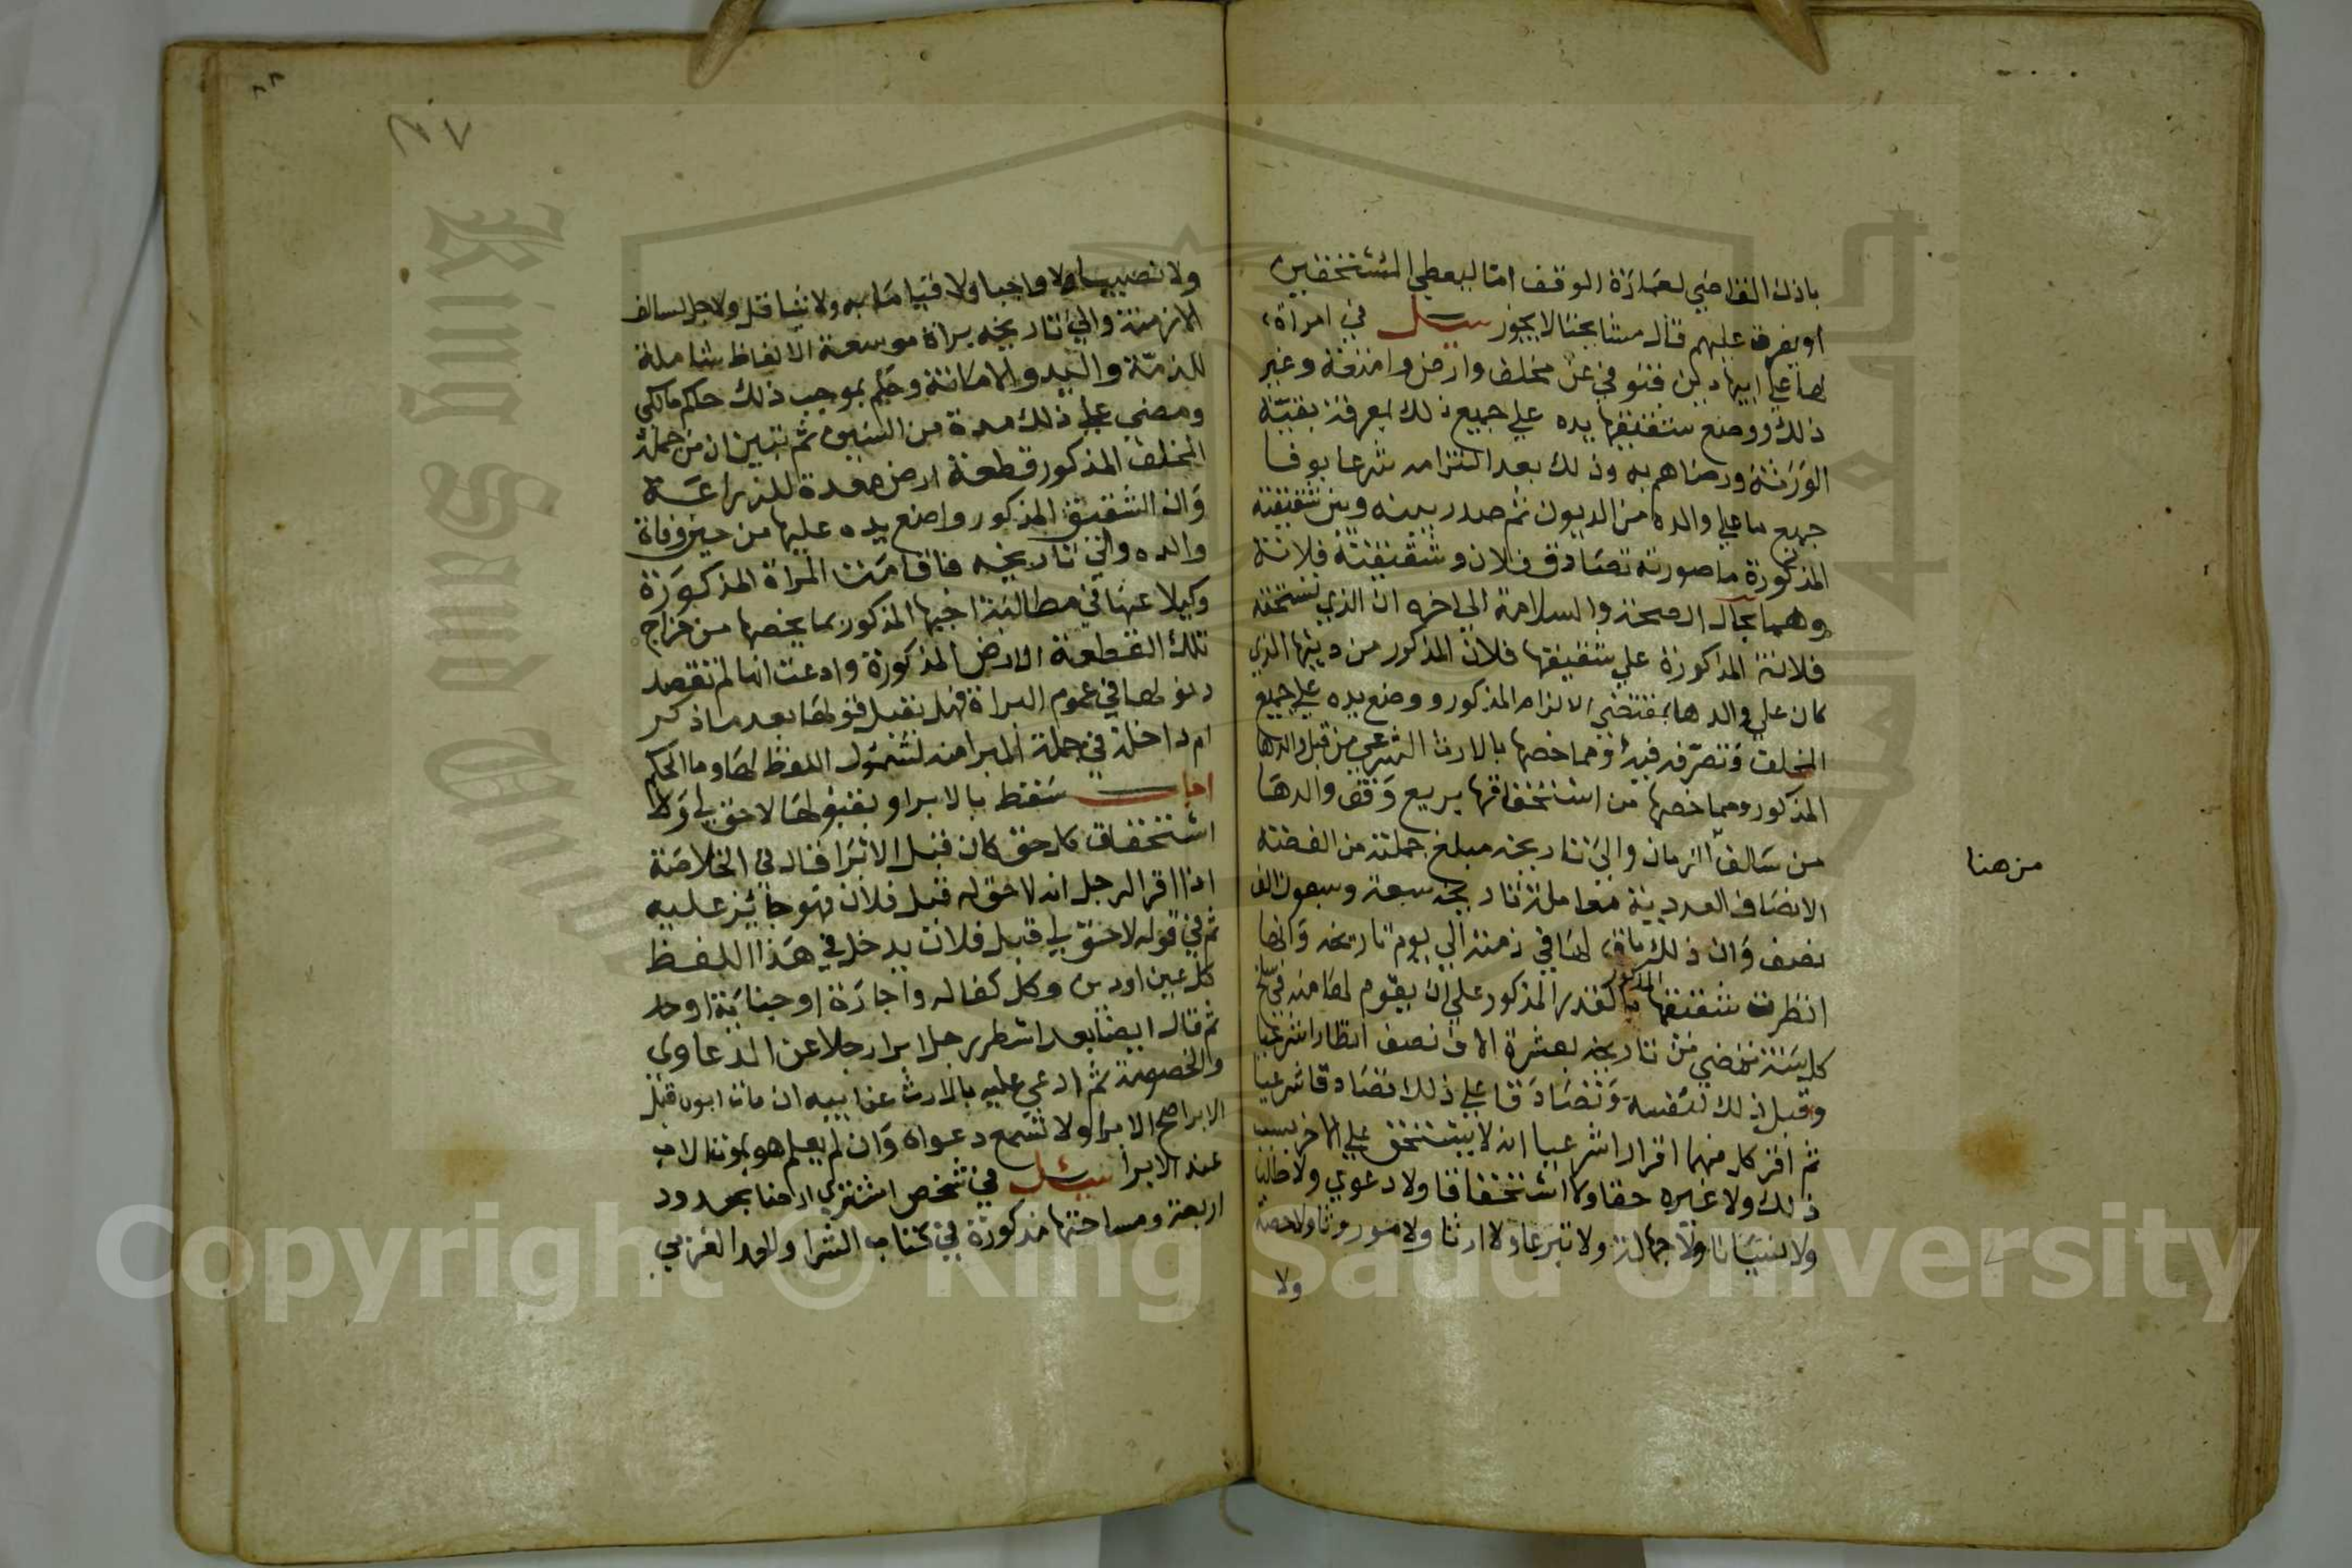 باذن القاضي لعمارة الوقف اما ليعطي المستحقين
او يفرق عليهم قال مشايخنا لا يجوز سيل في امراة
لها علي ابيها دين فتوفي عن مخلف وارض وامتعة وغير
ذلك ووضع شقيقها يده علي جميع ذلك بمعرفة بقية
الورثة ورضاهم به وذلك بعد التزامه شرعا بوفا
جميع ما علي والده من الديون ثم صدر بينه وبين شقيقته
المذكورة ما صورته تصادق فلان وشقيقته فلانة
وهما بحال الصحة والسلامة الي اخره ان الذي تستحقه
فلانة المذكورة علي شقيقها فلان المذكور من دينها الذي
كان علي والدها بمقتضي الالتزام المذكور ووضع يده علي جميع
المخلف وتصرفه فيه ومما خصها بالارث الشرعي من قبل والدها
المذكور ومما خصها من استحقاقها بريع وقف والدها
من سالف الزمان والي تاريخه مبلغ جملته من الفضة
الانصاف العددية معاملة تاريخه سبعة وسبعون الف
نصف وان ذلك باق لها في ذمته الي يوم تاريخه وانها
انظرت شقيقها المذكور بالقدر المذكور علي ان يقوم لها منه في سلخ
كل سنة تمضي من تاريخه بعشرة الاف نصف انظارا شرعيا
وقبل ذلك لنفسه وتصادقا علي ذلك تصادقا شرعيا
ثم اقر كل منهما اقرارا شرعيا انه لا يستحق علي الاخر بسبب
ذلك ولا غيره حقا ولا استحقاقا ولا دعوي ولا طلبا
ولا نسيانا ولا جهالة ولا تبرعا ولا ارثا ولا موروثا ولا حصة
ولا
من هنا
٨٨
ولا نصيبا ولا واجبا ولا قيامابه ولا شيا قل ولا جل لسالف
الازمنة والي تاريخه براة موسعة الالفاظ شاملة
للذمة واليد والامانة وحكم بموجب ذلك حكم مالكي
ومضي علي ذلك مدة من السنين ثم تبين ان من جملة
المخلف المذكور قطعة ارض معدة للزراعة
وان الشقيق المذكور واضع يده عليها من حين وفاة
والده والي تاريخه فاقامت المراة المذكورة
وكيلا عنها في مطالبة اخيها المذكور بما يخصها من خراج
تلك القطعة الارض المذكورة وادعت انها لم تقصد
دخولها في عموم البراة فهل يقبل قولها بعد ما ذكر
ام داخلة في جملة المبرا منه لشمول اللفظ لها وما الحكم
اجاب سقط بالابرا وبقولها لا حق لي ولا
استحقاق كل حق كان قبل الابرا قال في الخلاصة
اذا اقر الرجل انه لا حق له قبل فلان فهو جائز عليه
ثم في قوله لا حق لي قبل فلان يدخل في هذا اللفظ
كل عين او دين وكل كفالة واجارة او جناية او حد
ثم قال ايضا بعد اسطر رجل ابرا رجلا عن الدعاوي
والخصومة ثم ادعي عليه بالارث عن ابيه ان مات ابوه قبل
الابرا صح الابرا ولا تسمع دعواه وان لم يعلم هو بموت الاب
عند الابرا سيل في شخص اشتري ارضا بحدود
اربعة ومساحتها مذكورة في كتاب الشرا والحد الغربي
Copyright © King Saud University
King Saud University